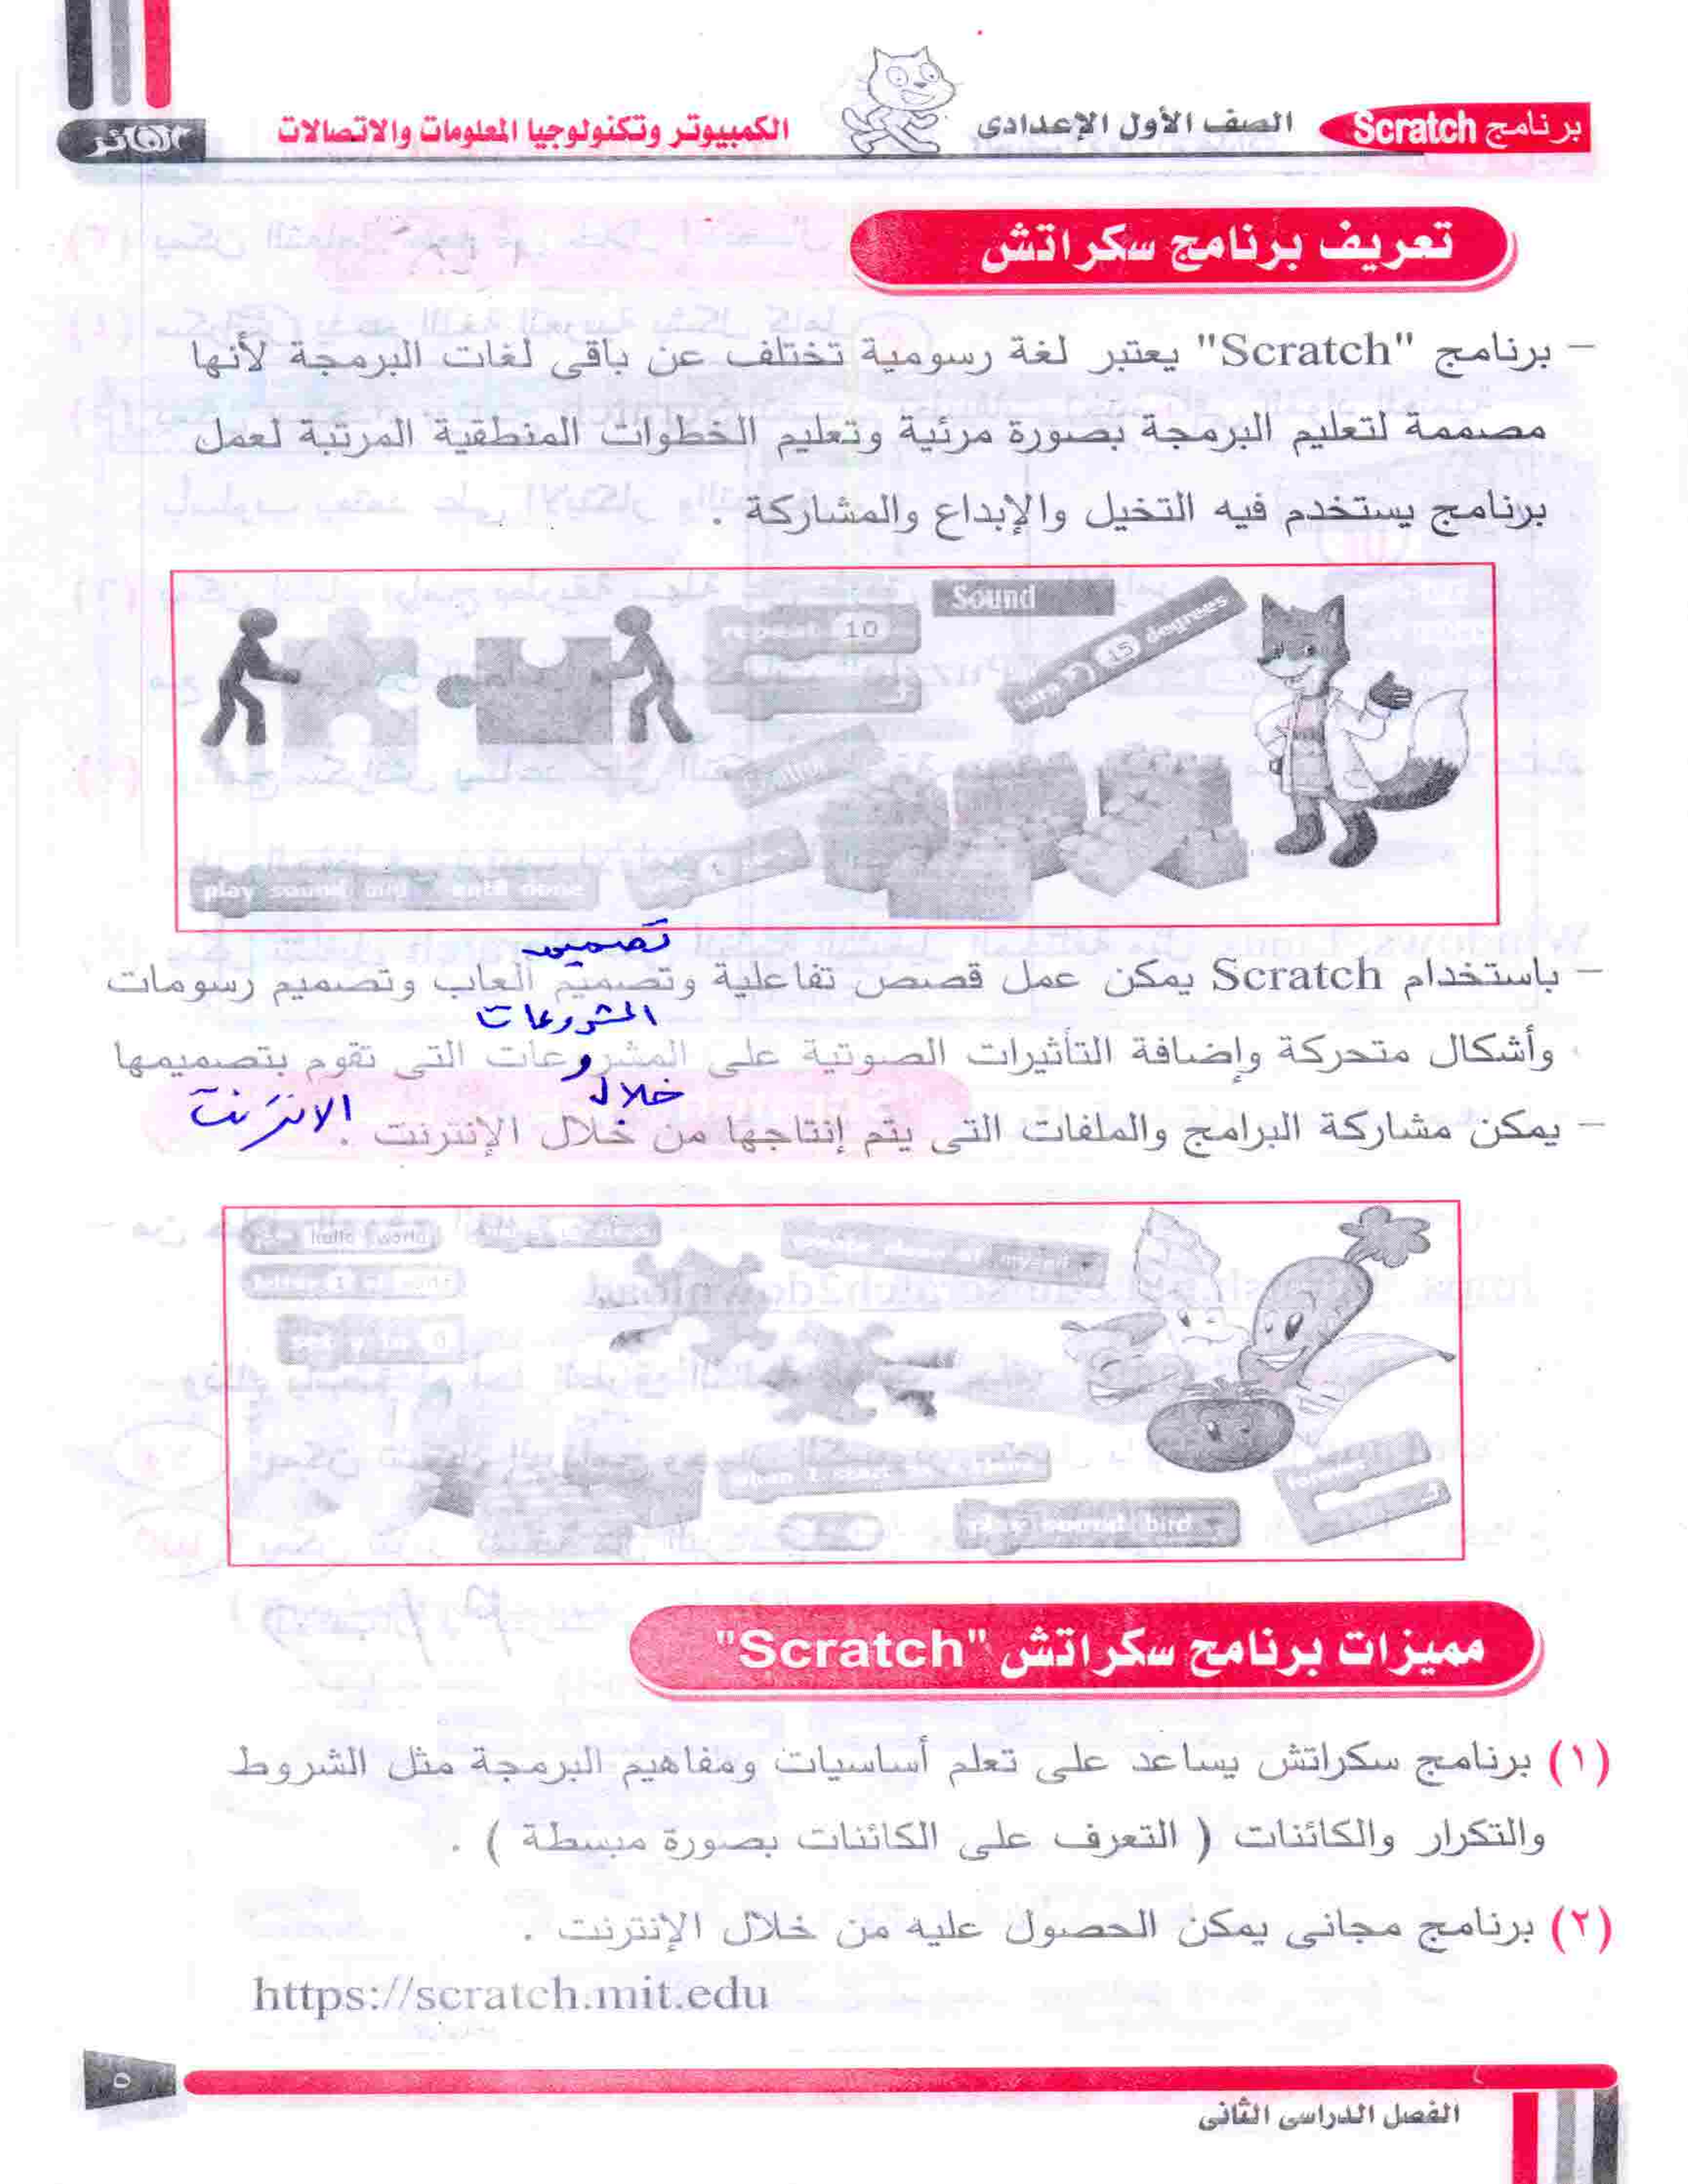 برنامج Scratch
الصف الأول الإعدادى
الكمبيوتر وتكنولوجيا المعلومات والاتصالات
الفائز
تعريف برنامج سكراتش
– برنامج "Scratch" يعتبر لغة رسومية تختلف عن باقى لغات البرمجة لأنها
مصممة لتعليم البرمجة بصورة مرئية وتعليم الخطوات المنطقية المرتبة لعمل
برنامج يستخدم فيه التخيل والإبداع والمشاركة .
Sound
repeat 10
turn 15 degrees
play sound until done
تصميم
– باستخدام Scratch يمكن عمل قصص تفاعلية وتصميم ألعاب وتصميم رسومات
المشروعات
وأشكال متحركة وإضافة التأثيرات الصوتية على المشروعات التى تقوم بتصميمها
خلال
الانترنت
– يمكن مشاركة البرامج والملفات التى يتم إنتاجها من خلال الإنترنت .
hello world
letter 1 of world
0
when I start as a clone
forever
play sound bird
مميزات برنامج سكراتش "Scratch"
(١) برنامج سكراتش يساعد على تعلم أساسيات ومفاهيم البرمجة مثل الشروط
والتكرار والكائنات ( التعرف على الكائنات بصورة مبسطة ) .
(٢) برنامج مجانى يمكن الحصول عليه من خلال الإنترنت .
https://scratch.mit.edu
٥
الفصل الدراسى الثانى